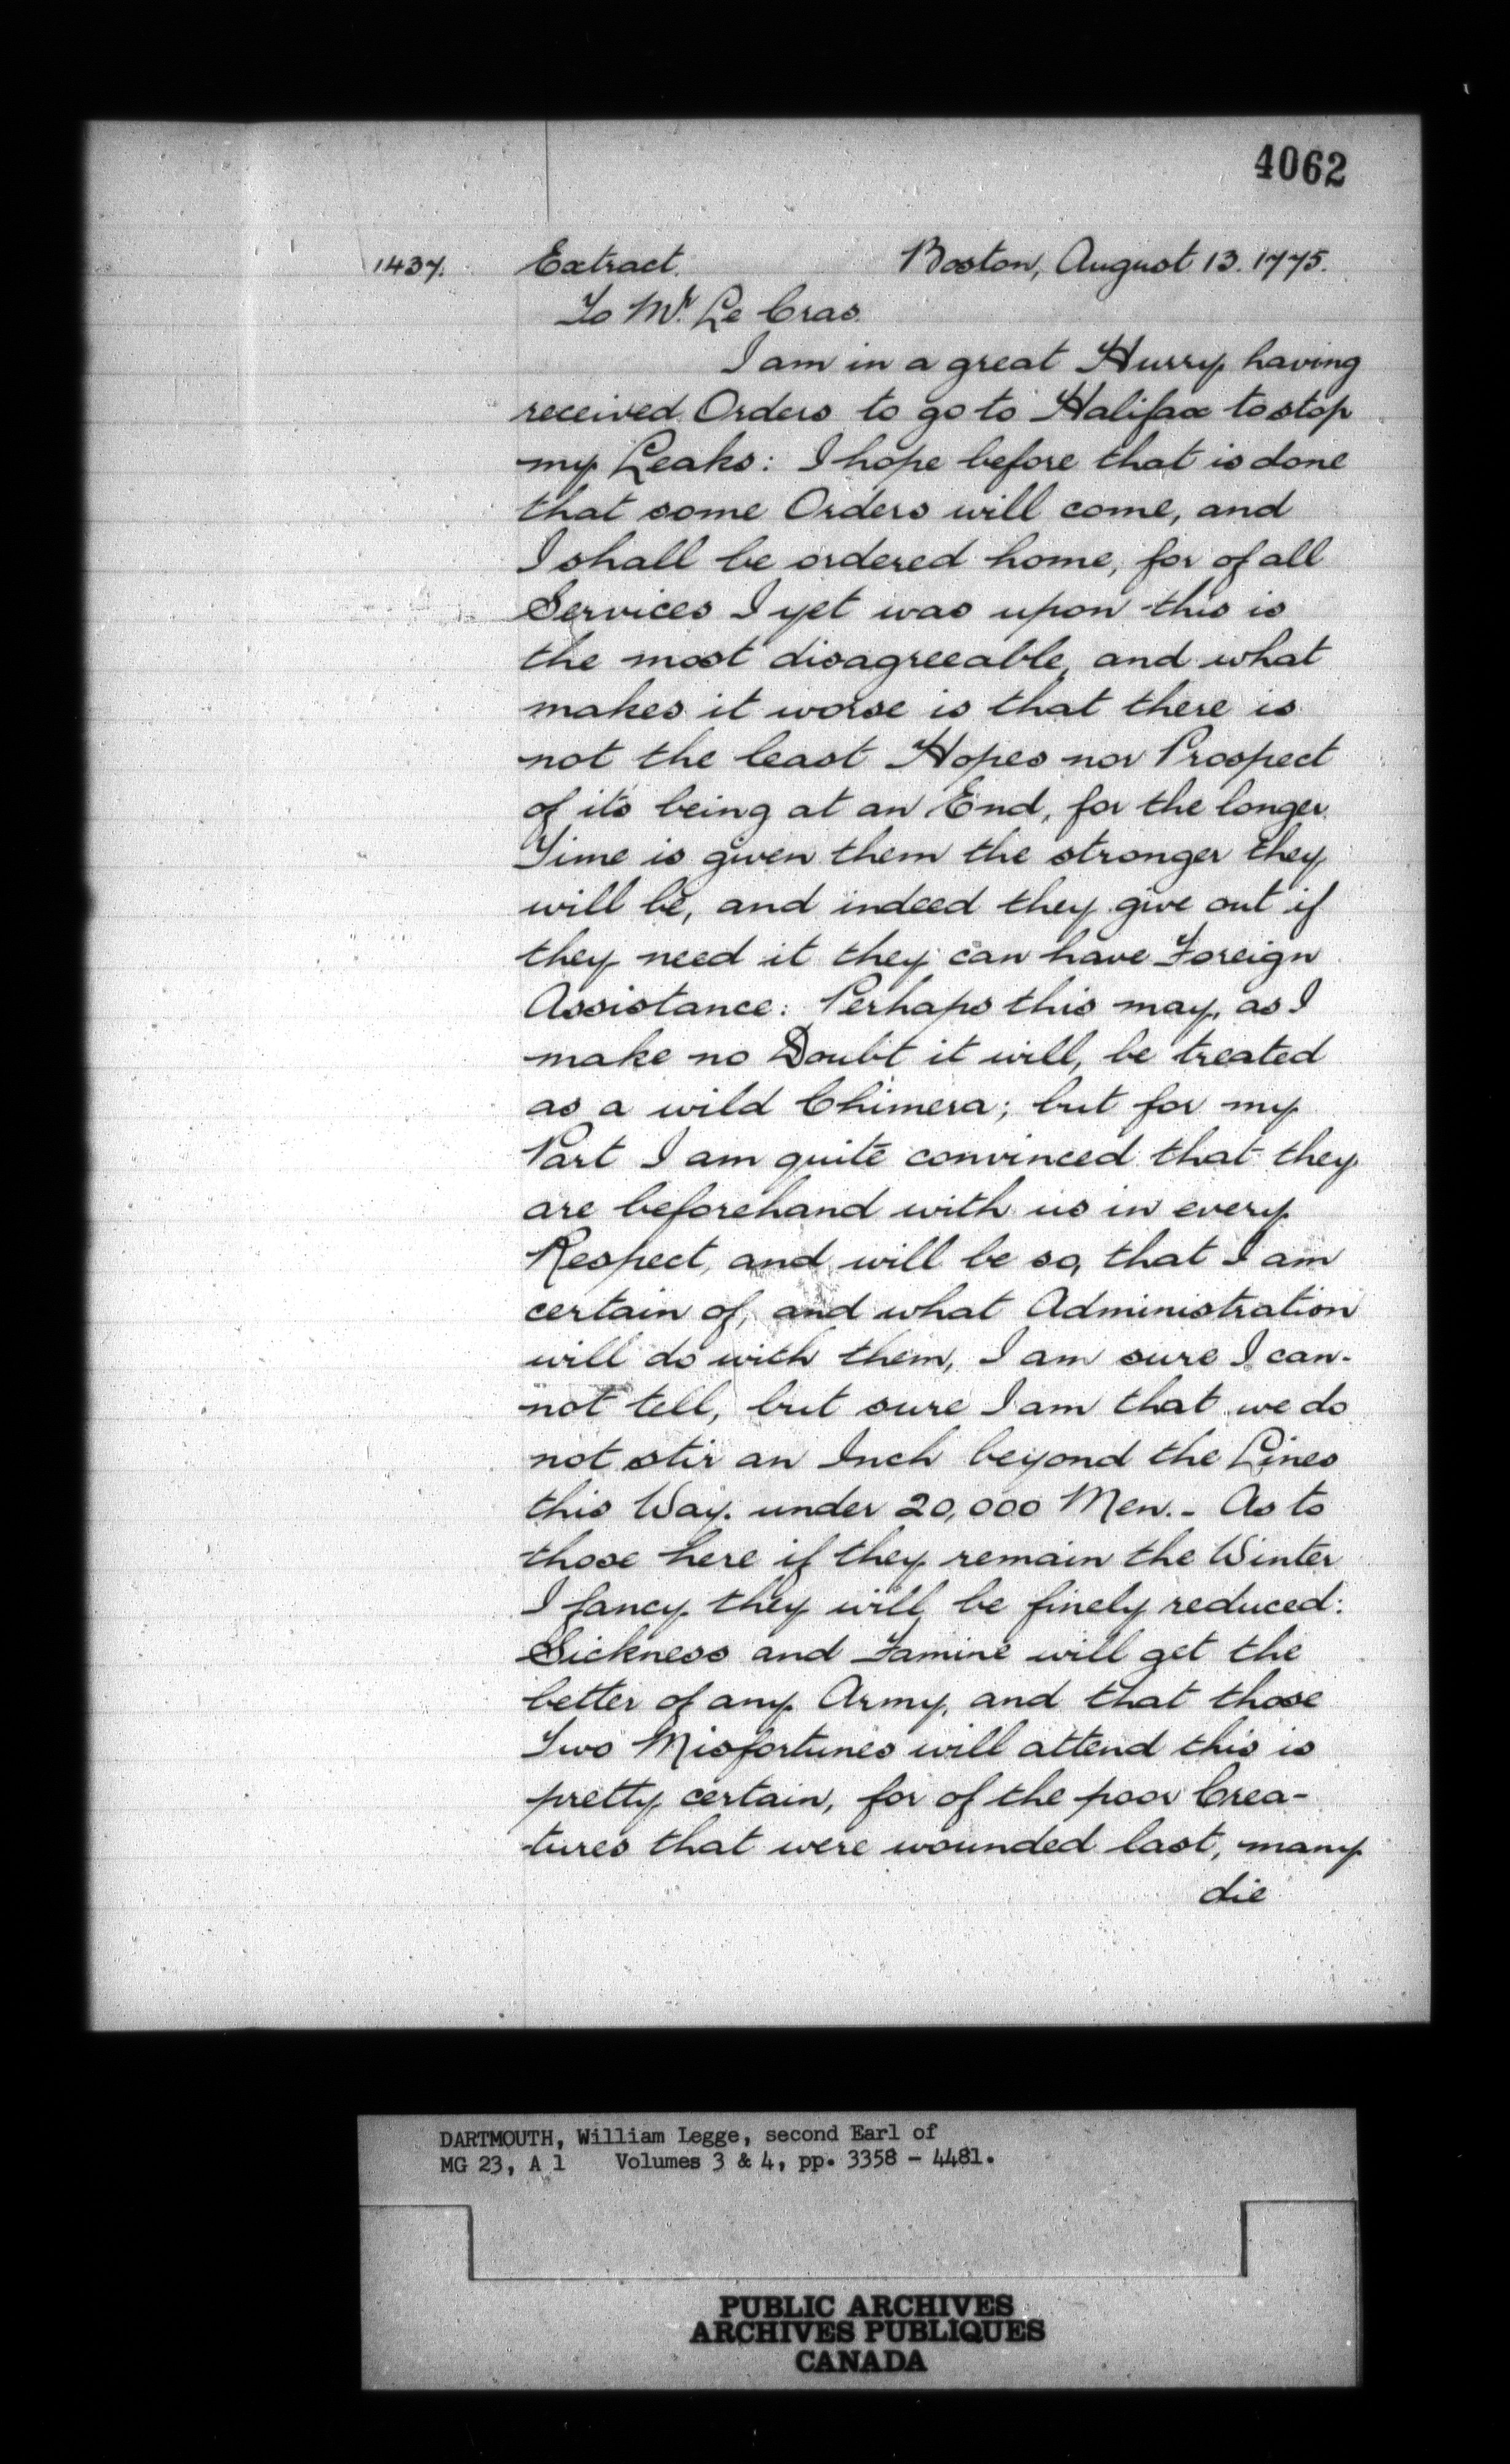 4062
1437. Extract. Boston, August 13. 1775.
To Mr. Le Cras.
I am in a great Hurry having
received Orders to go to Halifax to stop
my Leaks: I hope before that is done
that some Orders will come, and
I shall be ordered home, for of all
Services I yet was upon this is
the most disagreeable, and what
makes it worse is that there is
not the least Hopes nor Prospect
of its being at an End, for the longer
Time is given them the stronger they
will be, and indeed they give out if
they need it they can have Foreign
Assistance: Perhaps this may, as I
make no Doubt it will, be treated
as a wild Chimera; but for my
Part I am quite convinced that they
are beforehand with us in every
Respect, and will be so, that I am
certain of, and what Administration
will do with them, I am sure I can-
not tell, but sure I am that we do
not stir an Inch beyond the Lines
this Way under 20,000 Men. - As to
those here if they remain the Winter
I fancy they will be finely reduced:
Sickness and Famine will get the
better of any Army, and that those
Two Misfortunes will attend this is
pretty certain, for of the poor Crea-
tures that were wounded last, many
die
DARTMOUTH, William Legge, second Earl of
MG 23, A 1 Volumes 3 & 4, pp. 3358 - 4481.
PUBLIC ARCHIVES
ARCHIVES PUBLIQUES
CANADA